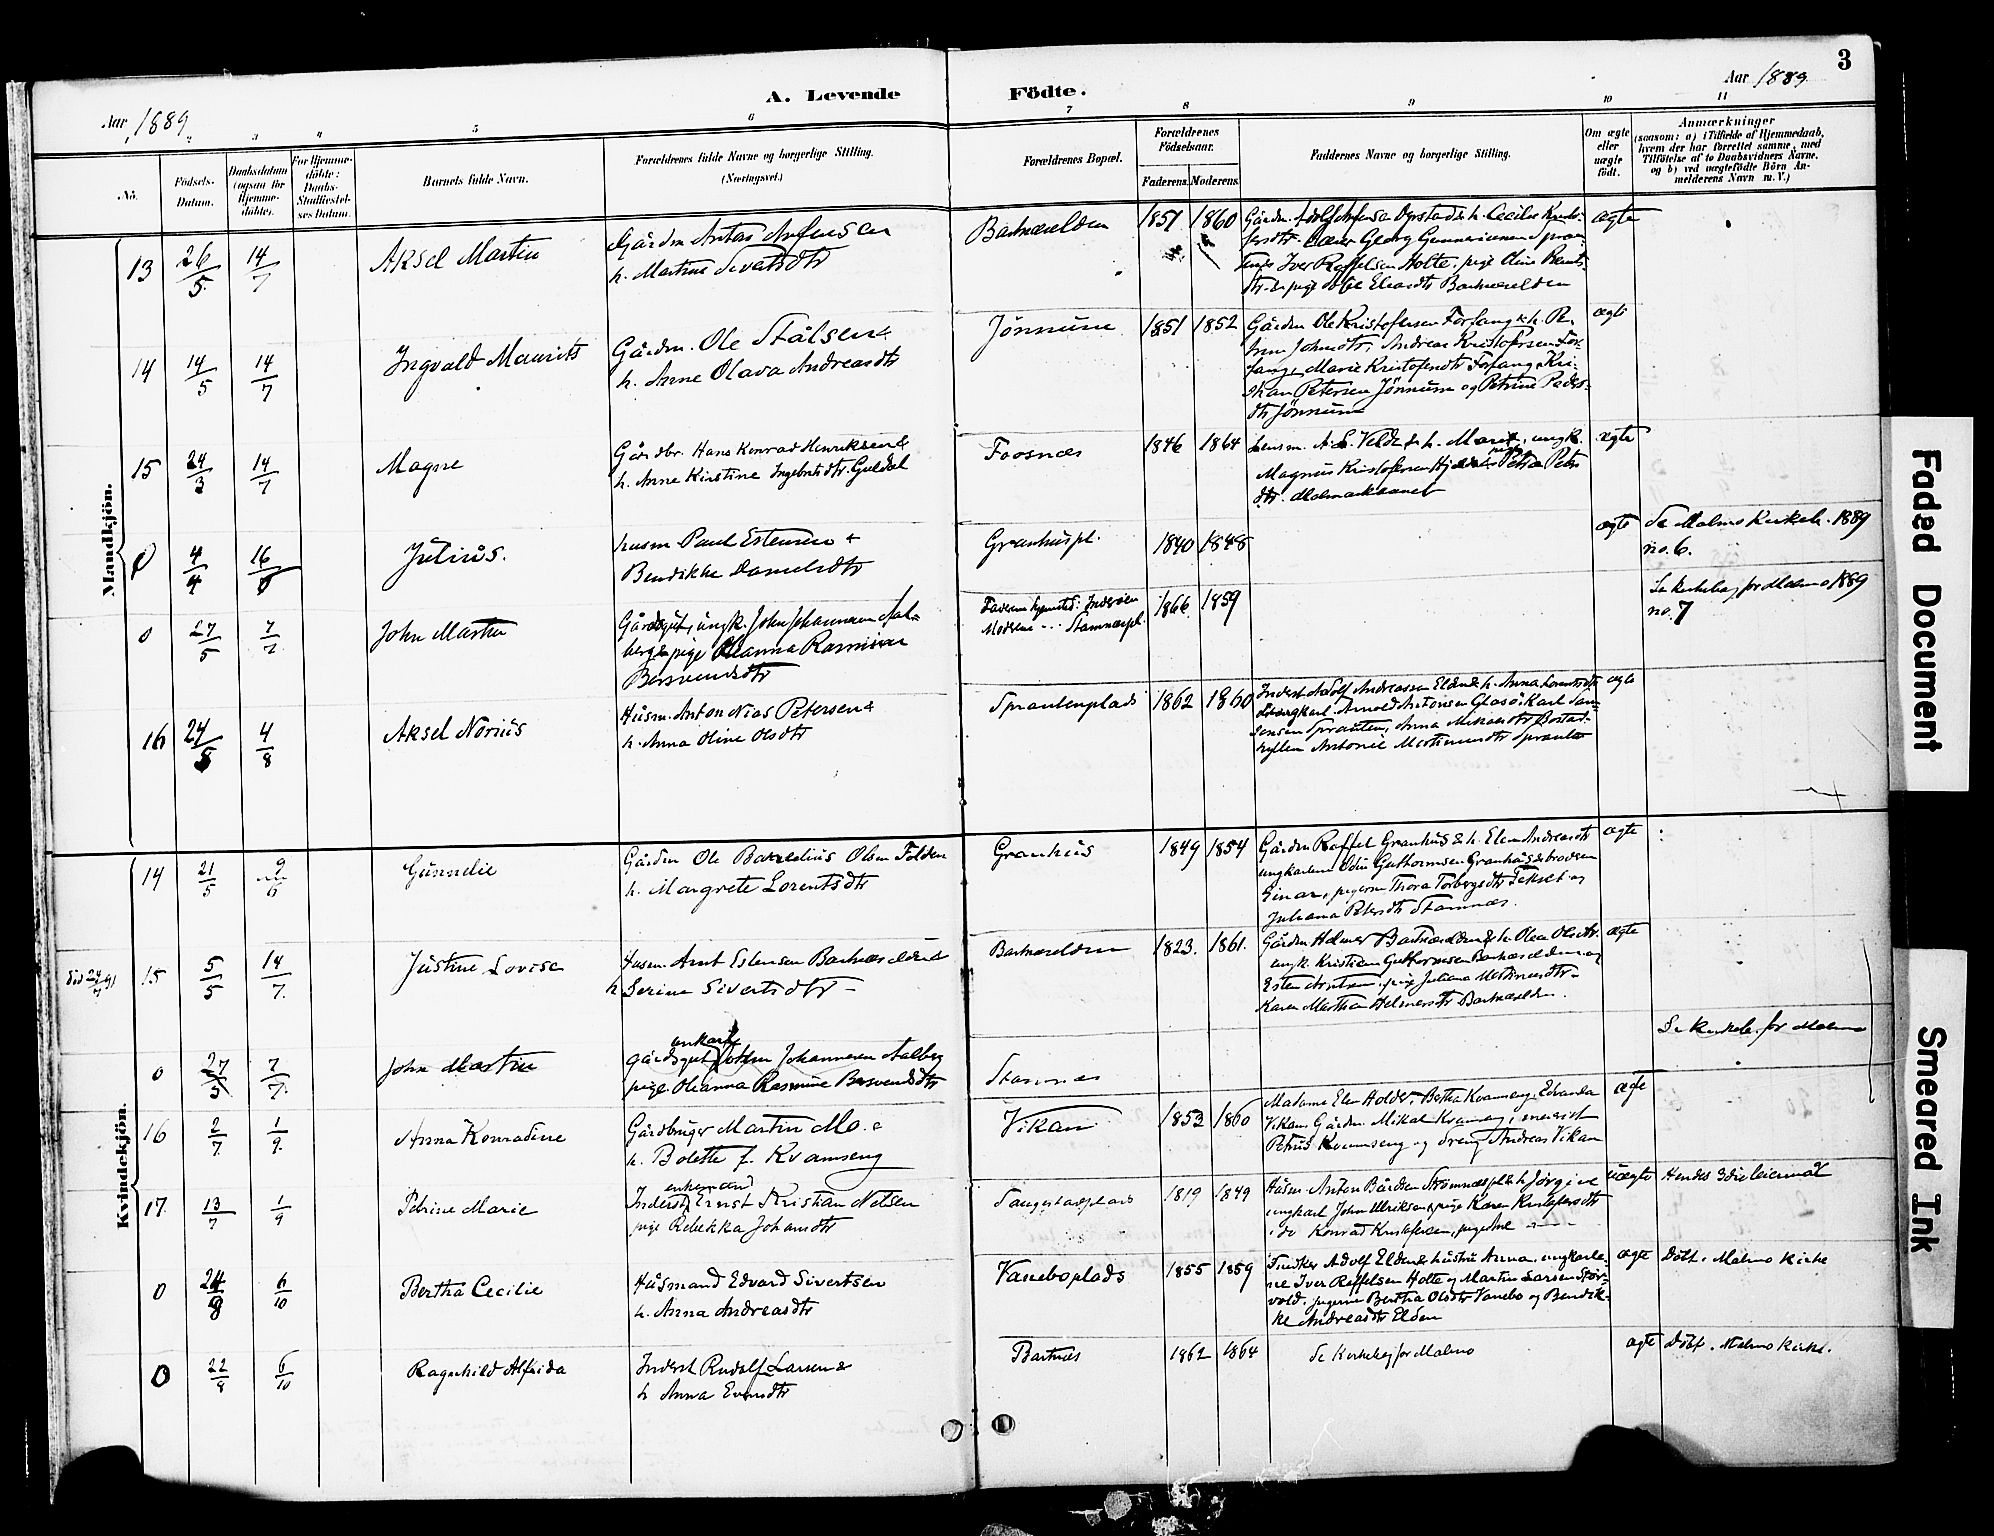 3
Aar 1889
A. Levende Födte.
Aar 1889
3 4 5 6 7 8 9 10 11
No.
Födsels-
Datum.
Daabsdatum
(ogsaa for
Hjemme-
döbte).
For Hjemme-
döbte:
Daabs-
Stadfæstel-
ses Datum.
Barnets fulde Navn.
Forældrenes fulde Navne og borgerlige Stilling.
(Næringsvei.)
Forældrenes Bopæl.
Forældrenes
Födselsaar.
Faderens. Moderens.
Faddernes Navne og borgerlige Stilling.
Om ægte
eller
uægte
födt.
Anmærkninger
(saasom: a) i Tilfælde af Hjemmedaab,
hvem der har forrettet samme, med
Tilföielse af to Daabsvidners Navne,
og b) ved uægtefödte Börn An-
melderens Navn m. V.)
Mandkjön.
13 26/5 14/7 Aksel Martin
Gårdm Antas
h. Martine Sivertsdtr
Bartneselden 1851 1860
Iver Roffelsen Holte, pige Oline
ægte
14 14/5 14/7 Ingvald Maurits
Gårdm. Ole Stålsen &
h. Anne Olava Andreasdtr
Jönnum 1851 1852
Gårdm Ole Kristofersen Forfang & h.
Johnsdtr, Andreas Kristofersen For-
fang, Marie Kristofersdtr Forfang, Kri-
stian Petersen Jönnum og Petrine Peders-
dtr Jönnum
ægte
15 24/3 14/7 Magne
Gårdbr. Hans Konrad Henriksen &
h. Anne Kirstine Ingebrdtr. Guldal
Fosnæs 1846 1864
Lensm. A. L. Velde & h. Marie, ungk.
Magnus Kristofersen Petra Peters
dtr.
ægte
0 4/4 16/6 Julius.
husm Paul Estensen &
Bendikke Danielsdtr
Granhuspl. 1840 1848
ægte Se Malmo Kirkeb. 1889
no. 6.
0 27/5 7/7 John Martin
Gårdgut, ungk. John Johannesen Aal-
berg & pige Oleanna Rasmine
Bersvendsdtr
Faderens hjemsted: Inderöen
Moderens - - Stamnæspl. 1866. 1859
Se Kirkebog for Malmo 1889
no. 7
16 24/5 4/8 Aksel Norius
Husm. Anton Nias Petersen &
h. Anna Oline Olsdtr
Sprautenplads 1862 1860
Inderst Adolf Andreassen Elden & h. Anna
ungkarl. Arnold Antonsen Glasö, Karl
Sprauten, Anna
Antonie Martinusdtr Sprauten
ægte
Kvindekjön.
14 21/5 9/6 Gunnelie
Gårdm Ole Olsen Folden
h. Margrete Lorentsdtr
Granhus 1849 1854
Gårdm Roffel Granhus & h. Elen Andreasdtr
ungkarlene Odin Guttormsen Granhus & brodren
Einar, pigerne Thora Torbergsdtr og
Juliana Petersdtr Stamnes.
ægte
död 24/7 91
15 5/5 14/7 Justine Lovise
Husm. Arnt Estensen Bartneselden &
h Serine Sivertsdtr -
Bartneselden 1823. 1861.
Gårdm Helmer Bartneselden & h. Olea Olsdtr.
ungk. Kristian Guttormsen Bartneselden og
Esten Arntsen, pige Juliana Martinusdtr -
Karen Marthea Helmersdtr Bartneselden.
ægte
0 27/5 7/7. John Martin
ungkarl
Gårdsgut John Johannesen Aalberg
pige Oleanna Rasmine Bersvendsdtr
Stamnes
Se Kirkeb. for Malmo
16 2/7 1/9. Anna Konradine
Gårdbruger Martin Mo. &
h. Bolette f. Kvamseng
Vikan 1853 1860
Madame Elen Holder, Bertha Kvamseng, Edvarda
Vikan, Gårdm. Mikal Kvamseng,
Petrus Kvamseng og dreng Andreas Vikan
ægte
17. 13/7 1/9 Petrine Marie
enkemand
Inderst Ernst Kristian Nelsen
pige Rebekka Johansdtr
1819 1849
Husm Anton Bårdsen Strömnespl & h Jörgine
ungkarl John Ulriksen, pige Karen Kristofersdtr
do Konrad Kristofersen, pige - - -
uægte Hendes 3die leiermål
0 24/8 6/10 Bertha Cecilie
Husmand Edvard Sivertsen
h. Anna Andreasdtr
Vaneboplads 1855 1859
Adolf Elden & hustru Anna, ungkarle-
ne Iver Roffelsen Holte og Martin Larsen Stör-
vold. pigerne Bertha Olsdtr Vanebo og Bendik-
ke Andreasdtr Elden
ægte Döbt i Malmo Kirke
0 22/8 6/10 Ragnhild Alfrida
Inderst Rudolf Larsen &
h Anna Evensdtr
Bartnes 1862 1864
Se Kirkebog for Malmo
ægte Döbt i Malmo Kirke.
Faded Document
Smeared Ink